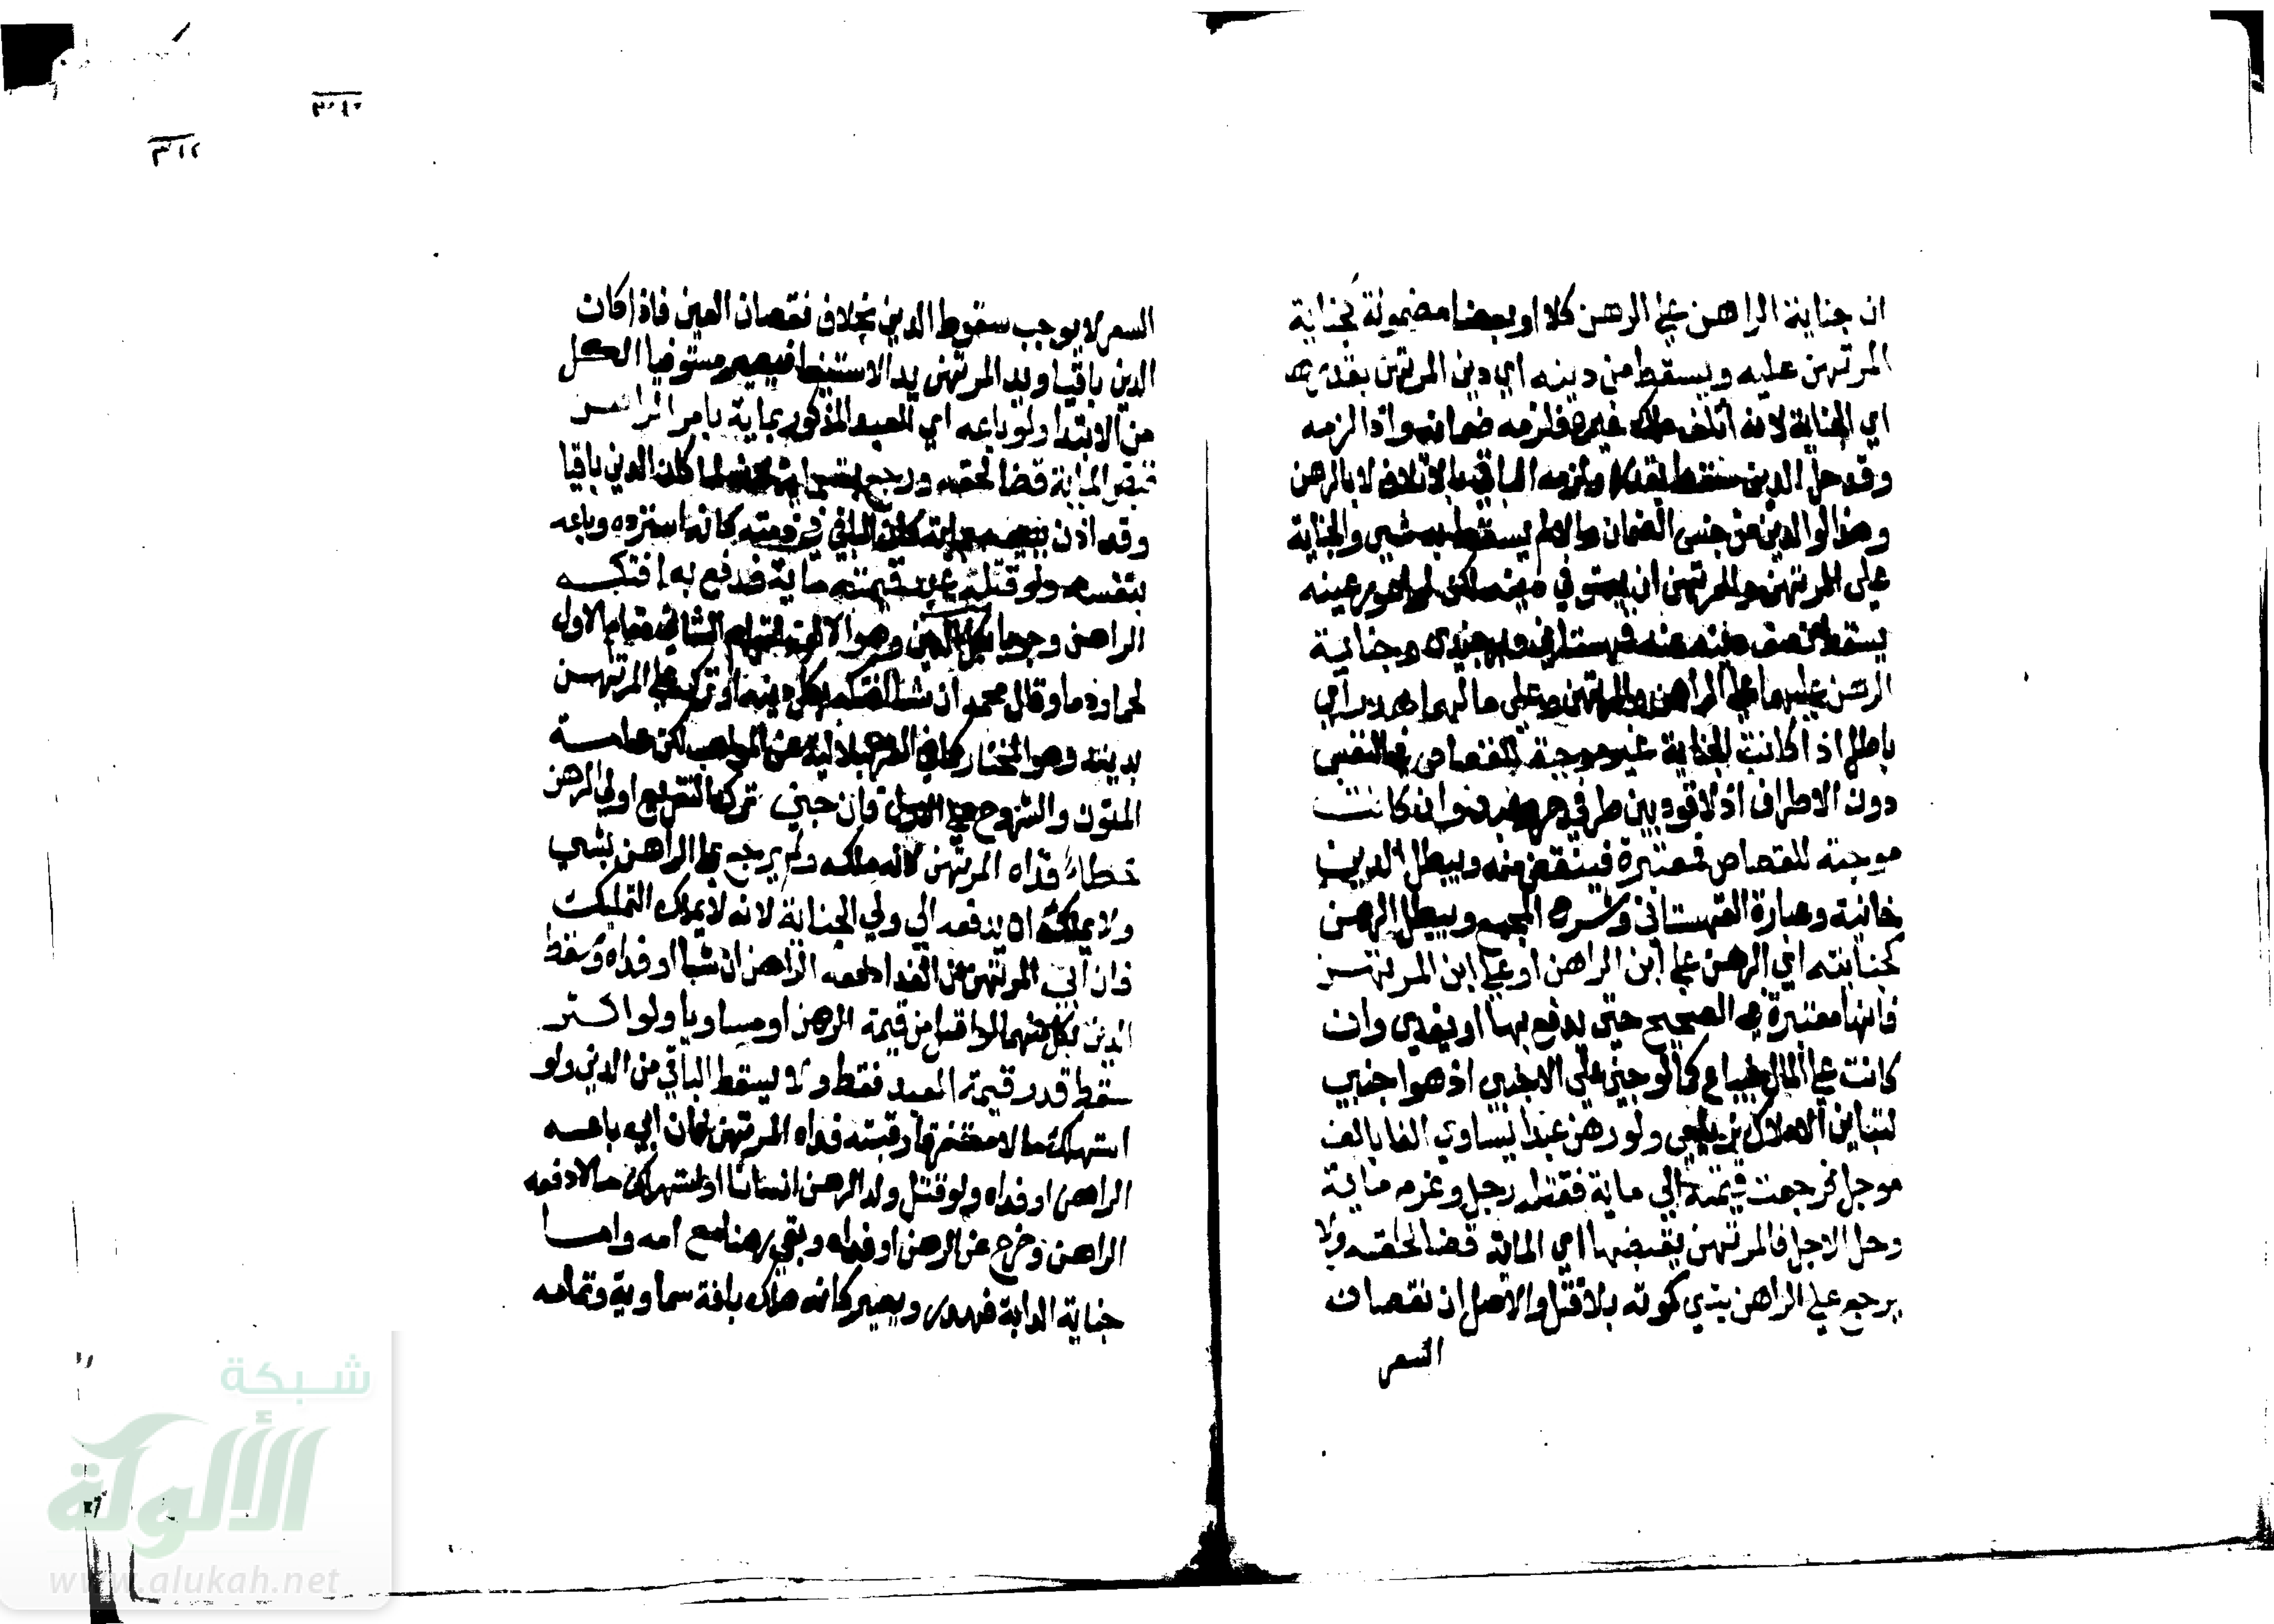 ان جناية الراهن على الرهن كلا او بعضا مضمونة كجناية
المرتهن عليه ويسقط من دينه اي دين المرتهن بقدرها
اي الجناية لانه أتلف ملك غيره فلزمه ضمانه واذا لزمه
وقد حل الدين سقط بقدره ولزمه الباقي بالاتلاف لا بالرهن
وهذا لو الدين من جنس الضمان والا لم يسقط به شي والجناية
على المرتهن وللمرتهن ان يستوفي دينه لكن لو اعور عينه
يسقط نصف دينه عنه قهستاني وبرجندي وجناية
الرهن عليهما اي الراهن والمرتهن وعلى مالهما هدر اي
باطل اذا كانت الجناية غير موجبة للقصاص في النفس
دون الاطراف اذ لا قود بين طرفي حر وعبد وان كانت
موجبة للقصاص فمعتبرة فيقتص منه ويبطل الدين
خانية وعبارة القهستاني وشرح المجمع ويبطل الرهن
كجنايته اي الرهن على ابن الراهن او على ابن المرتهن
فانها معتبرة في الصحيح حتى يدفع بها او يفدي وان
كانت على المال فيباع كما لو جنى على الاجنبي اذ هو اجنبي
لتباين الاملاك زيلعي ولو رهن عبدا يساوي الفا بالف
موجل فرجعت قيمته إلى ماية فقتله رجل وغرم ماية
وحل الاجل فالمرتهن يقبضها اي الماية قضا لحقه ولا
يرجع على الراهن بشي كموته بلا قتل والاصل ان نقصان
السعر
السعر لا يوجب سقوط الدين بخلاف نقصان العين فاذا كان
الدين باقيا ويد المرتهن يد الاستيفا فيصير مستوفيا الكل
من الابتدا ولو باعه اي العبد المذكور بماية بامر الراهن
قبض الماية قضا لحقه ورجع بتسعماية لما كان الدين باقيا
وقد اذن ببيعه بماية كان الباقي في ذمته كانه استرده وباعه
بنفسه ولو قتله عبد قيمته ماية فدفع به افتكه
الراهن وجوبا بكل الدين وهو الالف لقيام الثاني مقام الاول
لحما ودما وقال محمد ان شا افتكه بكل دينه او تركه على المرتهن
بدينه وهو المختار كما في الشرنبلالية عن المواهب لكن عامة
المتون والشروح على الاول فان جنى ترك التفريع اولى الرهن
خطاءً فداه المرتهن لانه ملكه ولم يرجع على الراهن بشي
ولا يملك ان يدفعه الى ولي الجناية لانه لا يملك التمليك
فان أبى المرتهن من الفدا دفعه الراهن ان شا او فداه وسقط
الدين بكل منهما لو اقل من قيمة الرهن او مساويا ولو اكثر
سقط قدر قيمة العبد فقط ولا يسقط الباقي من الدين ولو
استهلك مالا مستغرقا رقبته فداه المرتهن فان ابى باعه
الراهن او فداه ولو قتل ولد الرهن انسانا او استهلك مالا دفعه
الراهن وخرج عن الرهن او فداه وبقي رهنا مع امه واما
جناية الدابة فهدر ويصير كانه هلك بافة سماوية وتمامه